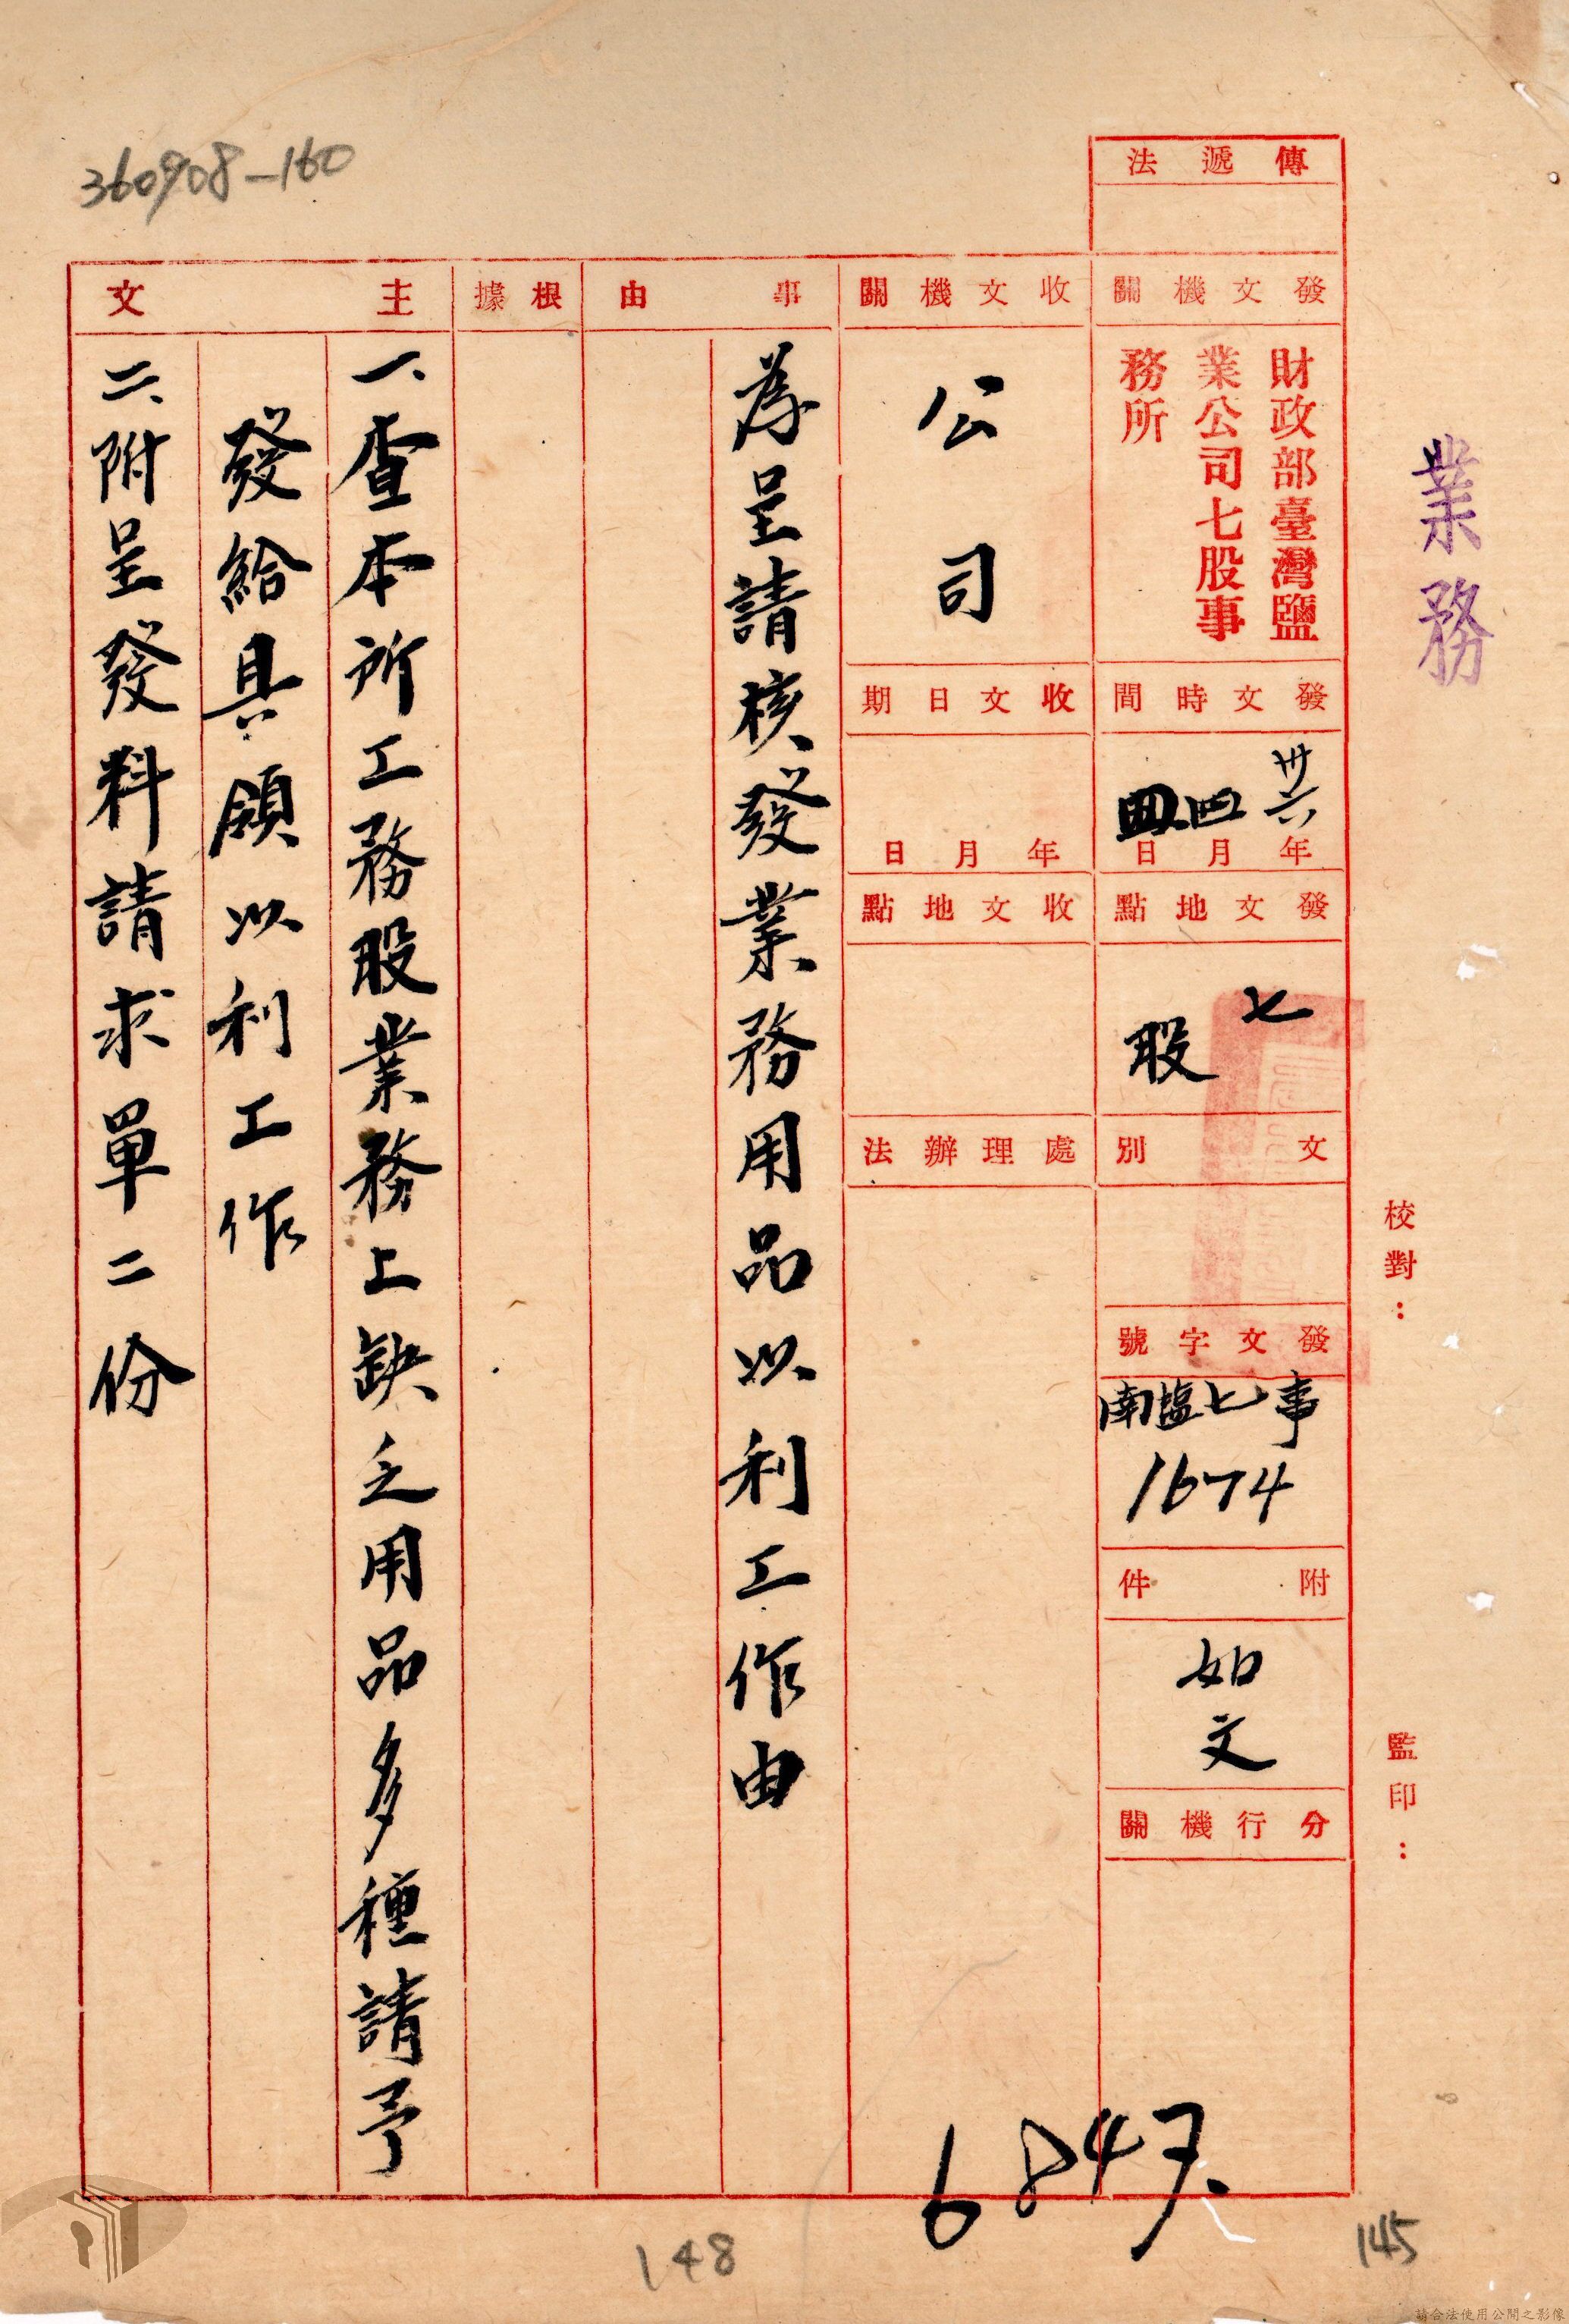 業務
校對：
監印：
傳遞法
發文機關
財政部臺灣鹽
業公司七股事
務所
發文時間
卅六年四月四日
發文地點
七
股
文別
發文字號
南塩七事
1674
附件
如
文
分行機關
收文機關
公司
收文日期
年月日
收文地點
處理辦法
事由
為呈請核發業務用品以利工作由
根據
主文
一、查本所工務股業務上缺乏用品多種請予
發給具領以利工作
二、附呈發料請求單二份
360908-160
6847
148
145
請合法使用公開之影像